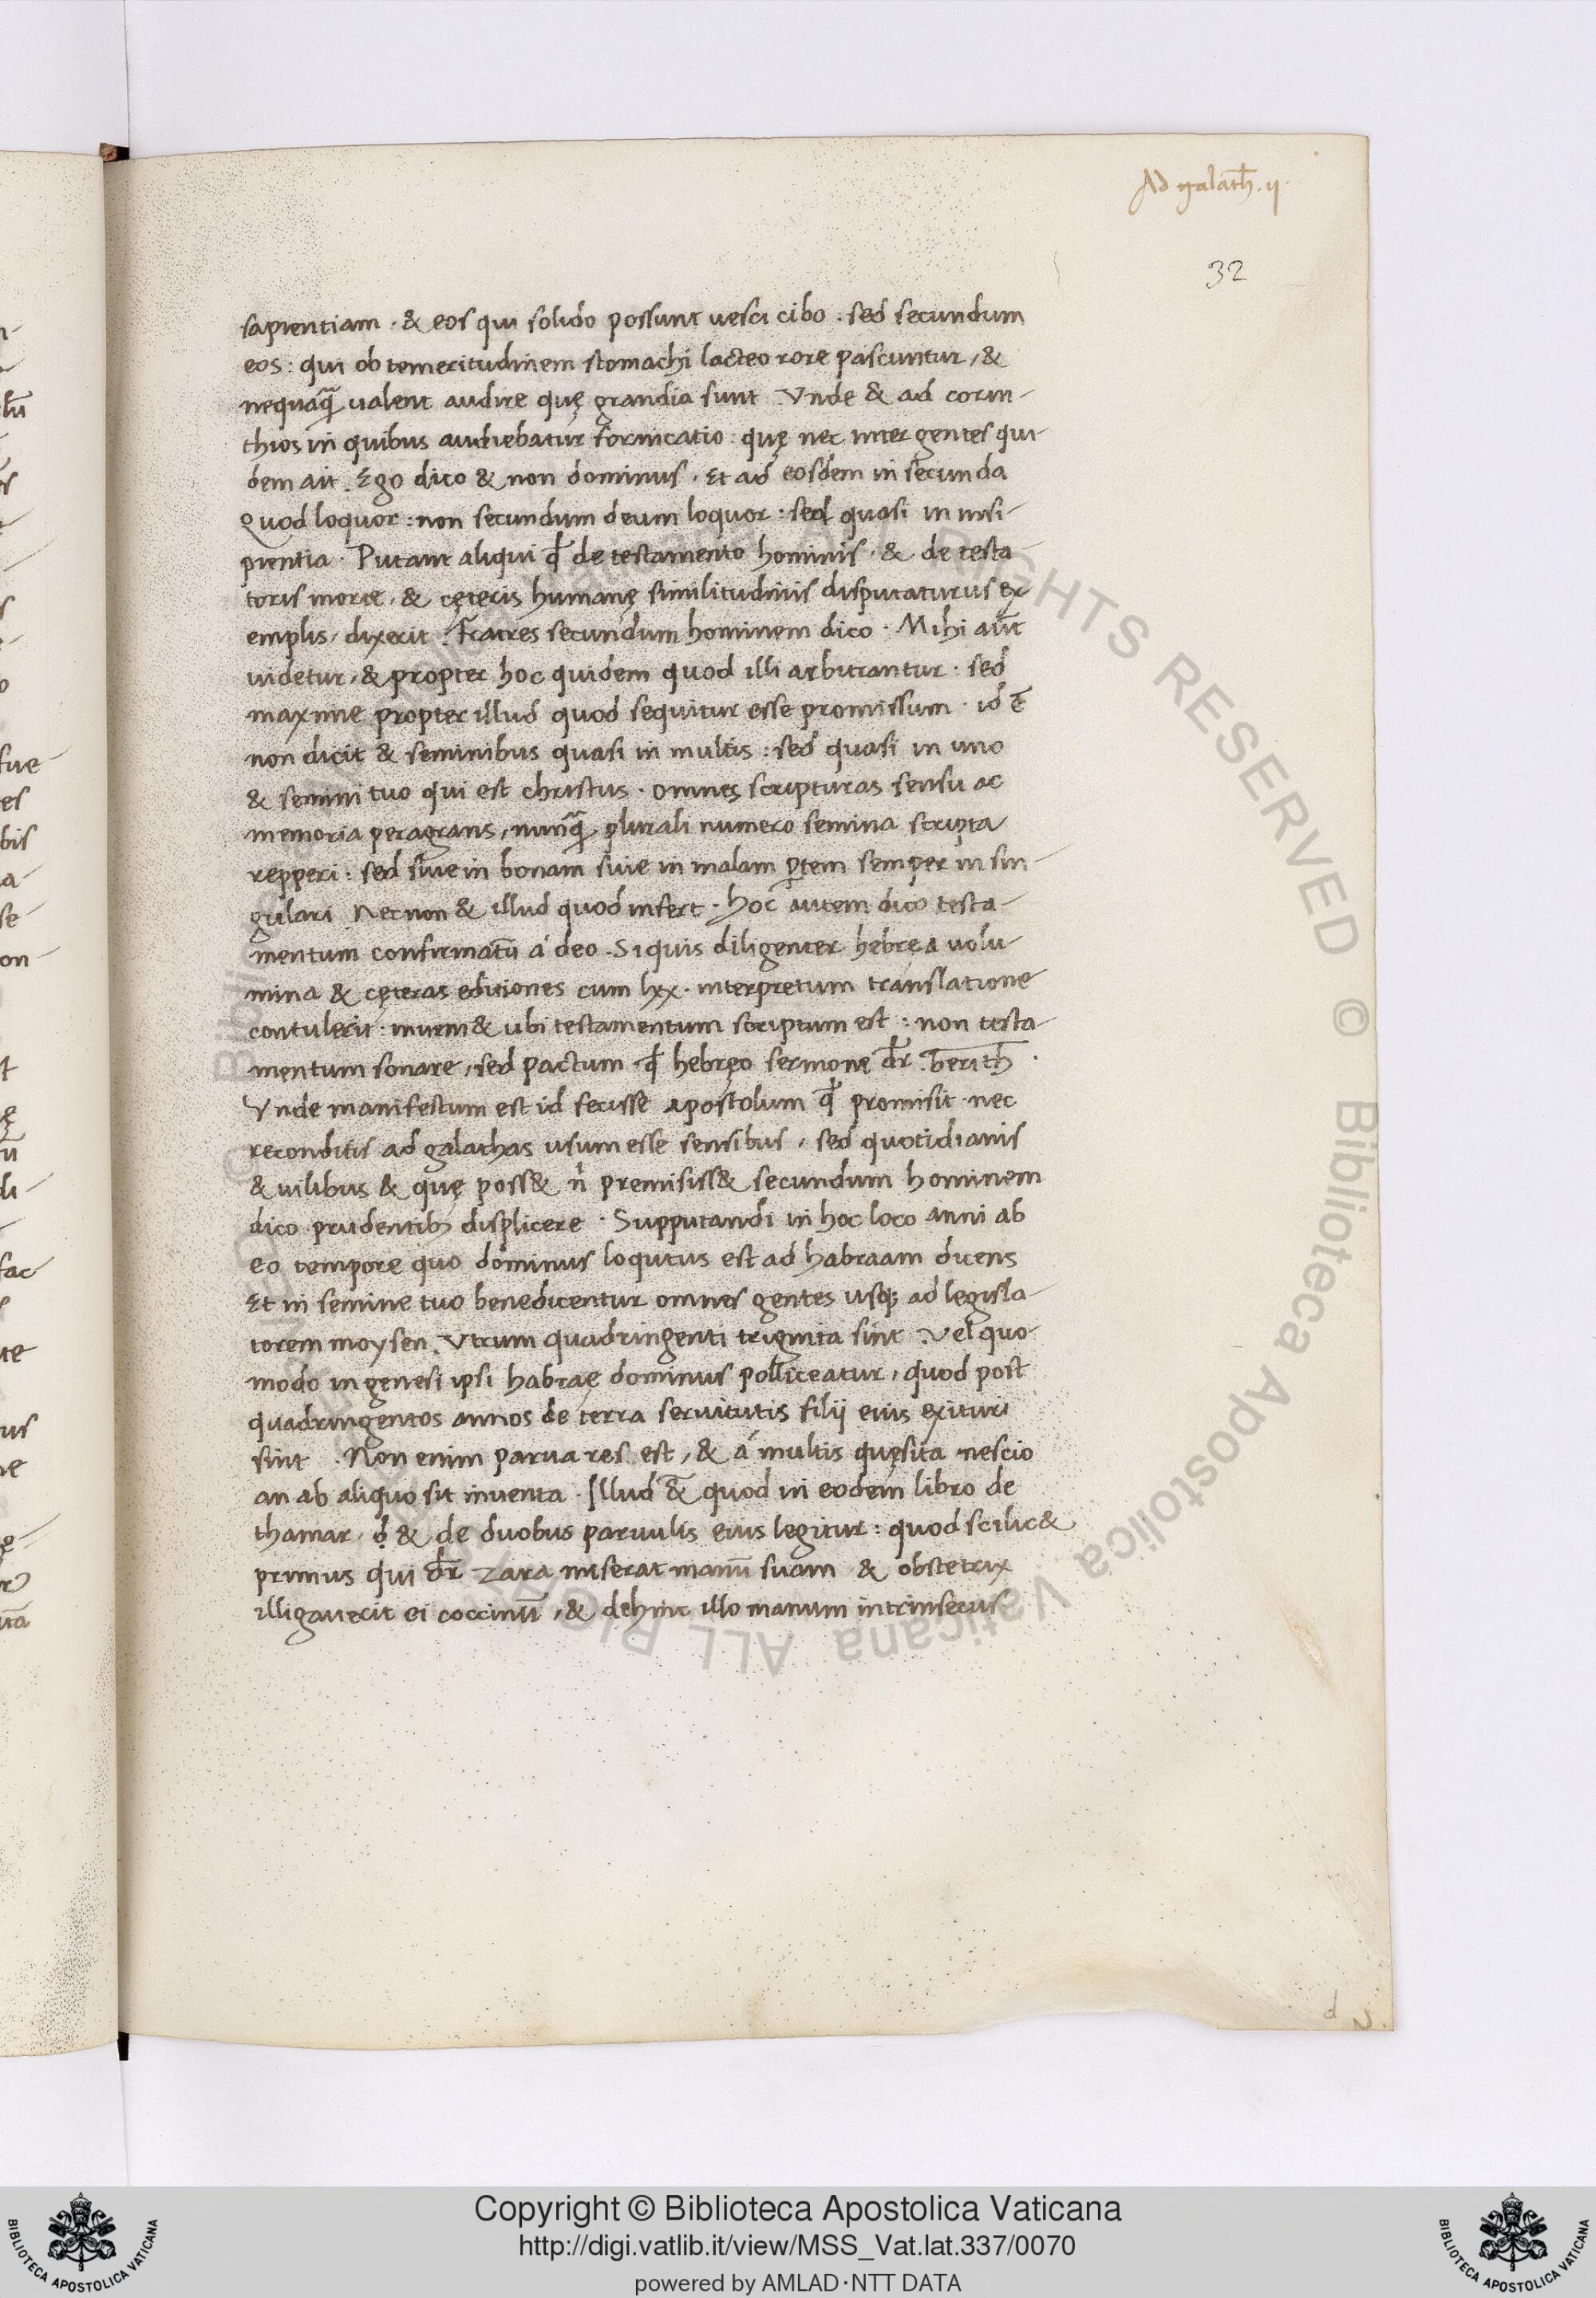 Ad galath̅. ij
32
sapientiam . & eos qui solido possunt uesci cibo . sed secundum
eos : qui ob temeritudinem stomachi lacteo rore pascuntur , &
nequaq̅ ualent audire quę grandia sunt . Vnde & ad corin-
thios in quibus audiebatur fornicatio : quę nec inter gentes qui-
dem ait . Ego dico & non dominus . Et ad eosdem in secunda
Quod loquor : non secundum deum loquor : sed quasi in insi-
pientia . Putant aliqui q̅ de testamento hominis . & de testa-
toris morte . & cęteris humanę similitudinis disputaturus ex-
emplis , dixerit . Fratres secundum hominem dico . Mihi aut̅
uidetur , & propter hoc quidem quod illi arbitrantur . sed
maxime propter illud quod sequitur esse promissum . id ē
non dicit & seminibus quasi in multis : sed quasi in uno
& semini tuo qui est christus . omnes scripturas sensu ac
memoria peragrans , nunq̅ plurali numero semina scripta
repperi : sed siue in bonam siue in malam p̱tem semper in sin-
gulari . Nec non & illud quod infert . hoc autem dico testa-
mentum confirmatū á deo . Si quis diligenter hebręa uolu-
mina & cęteras editiones cum lxx . interpretum translatione
contulerit : inueni& ubi testamentum scriptum est : non testa-
mentum sonare , sed pactum . q̅ hebręo sermone dr̅ . berith̅ .
Vnde manifestum est id fecisse apostolum q̅ promisit . nec
reconditis ad galathas usum esse sensibus , sed quotidianis
& uilibus & quę poss& n̅ premisiss& secundum hominem
dico prudentib; displicere . Supputandi in hoc loco anni ab
eo tempore quo dominus loqutus est ad habraam dicens
Et in semine tuo benedicentur omnes gentes usq; ad legisla-
torem moysen . Vtrum quadringenti triginta sint . Vel quo-
modo in genesi ipsi habraę dominus polliceatur , quod post
quadringentos annos de terra seruitutis filij eius exituri
sint . Non enim parua res est , & á multis quęsita nescio
an ab aliquo sit inuenta . Illud &̅ quod in eodem libro de
thamar . & de duobus paruulis eius legitur : quod scilic&
primus qui dr̅ zara miserat manū suam & obstetrix
illigauerit ei coccinū , & dehinc illo manum intrinsecus
d
Copyright © Biblioteca Apostolica Vaticana
http://digi.vatlib.it/view/MSS_Vat.lat.337/0070
powered by AMLAD·NTT DATA